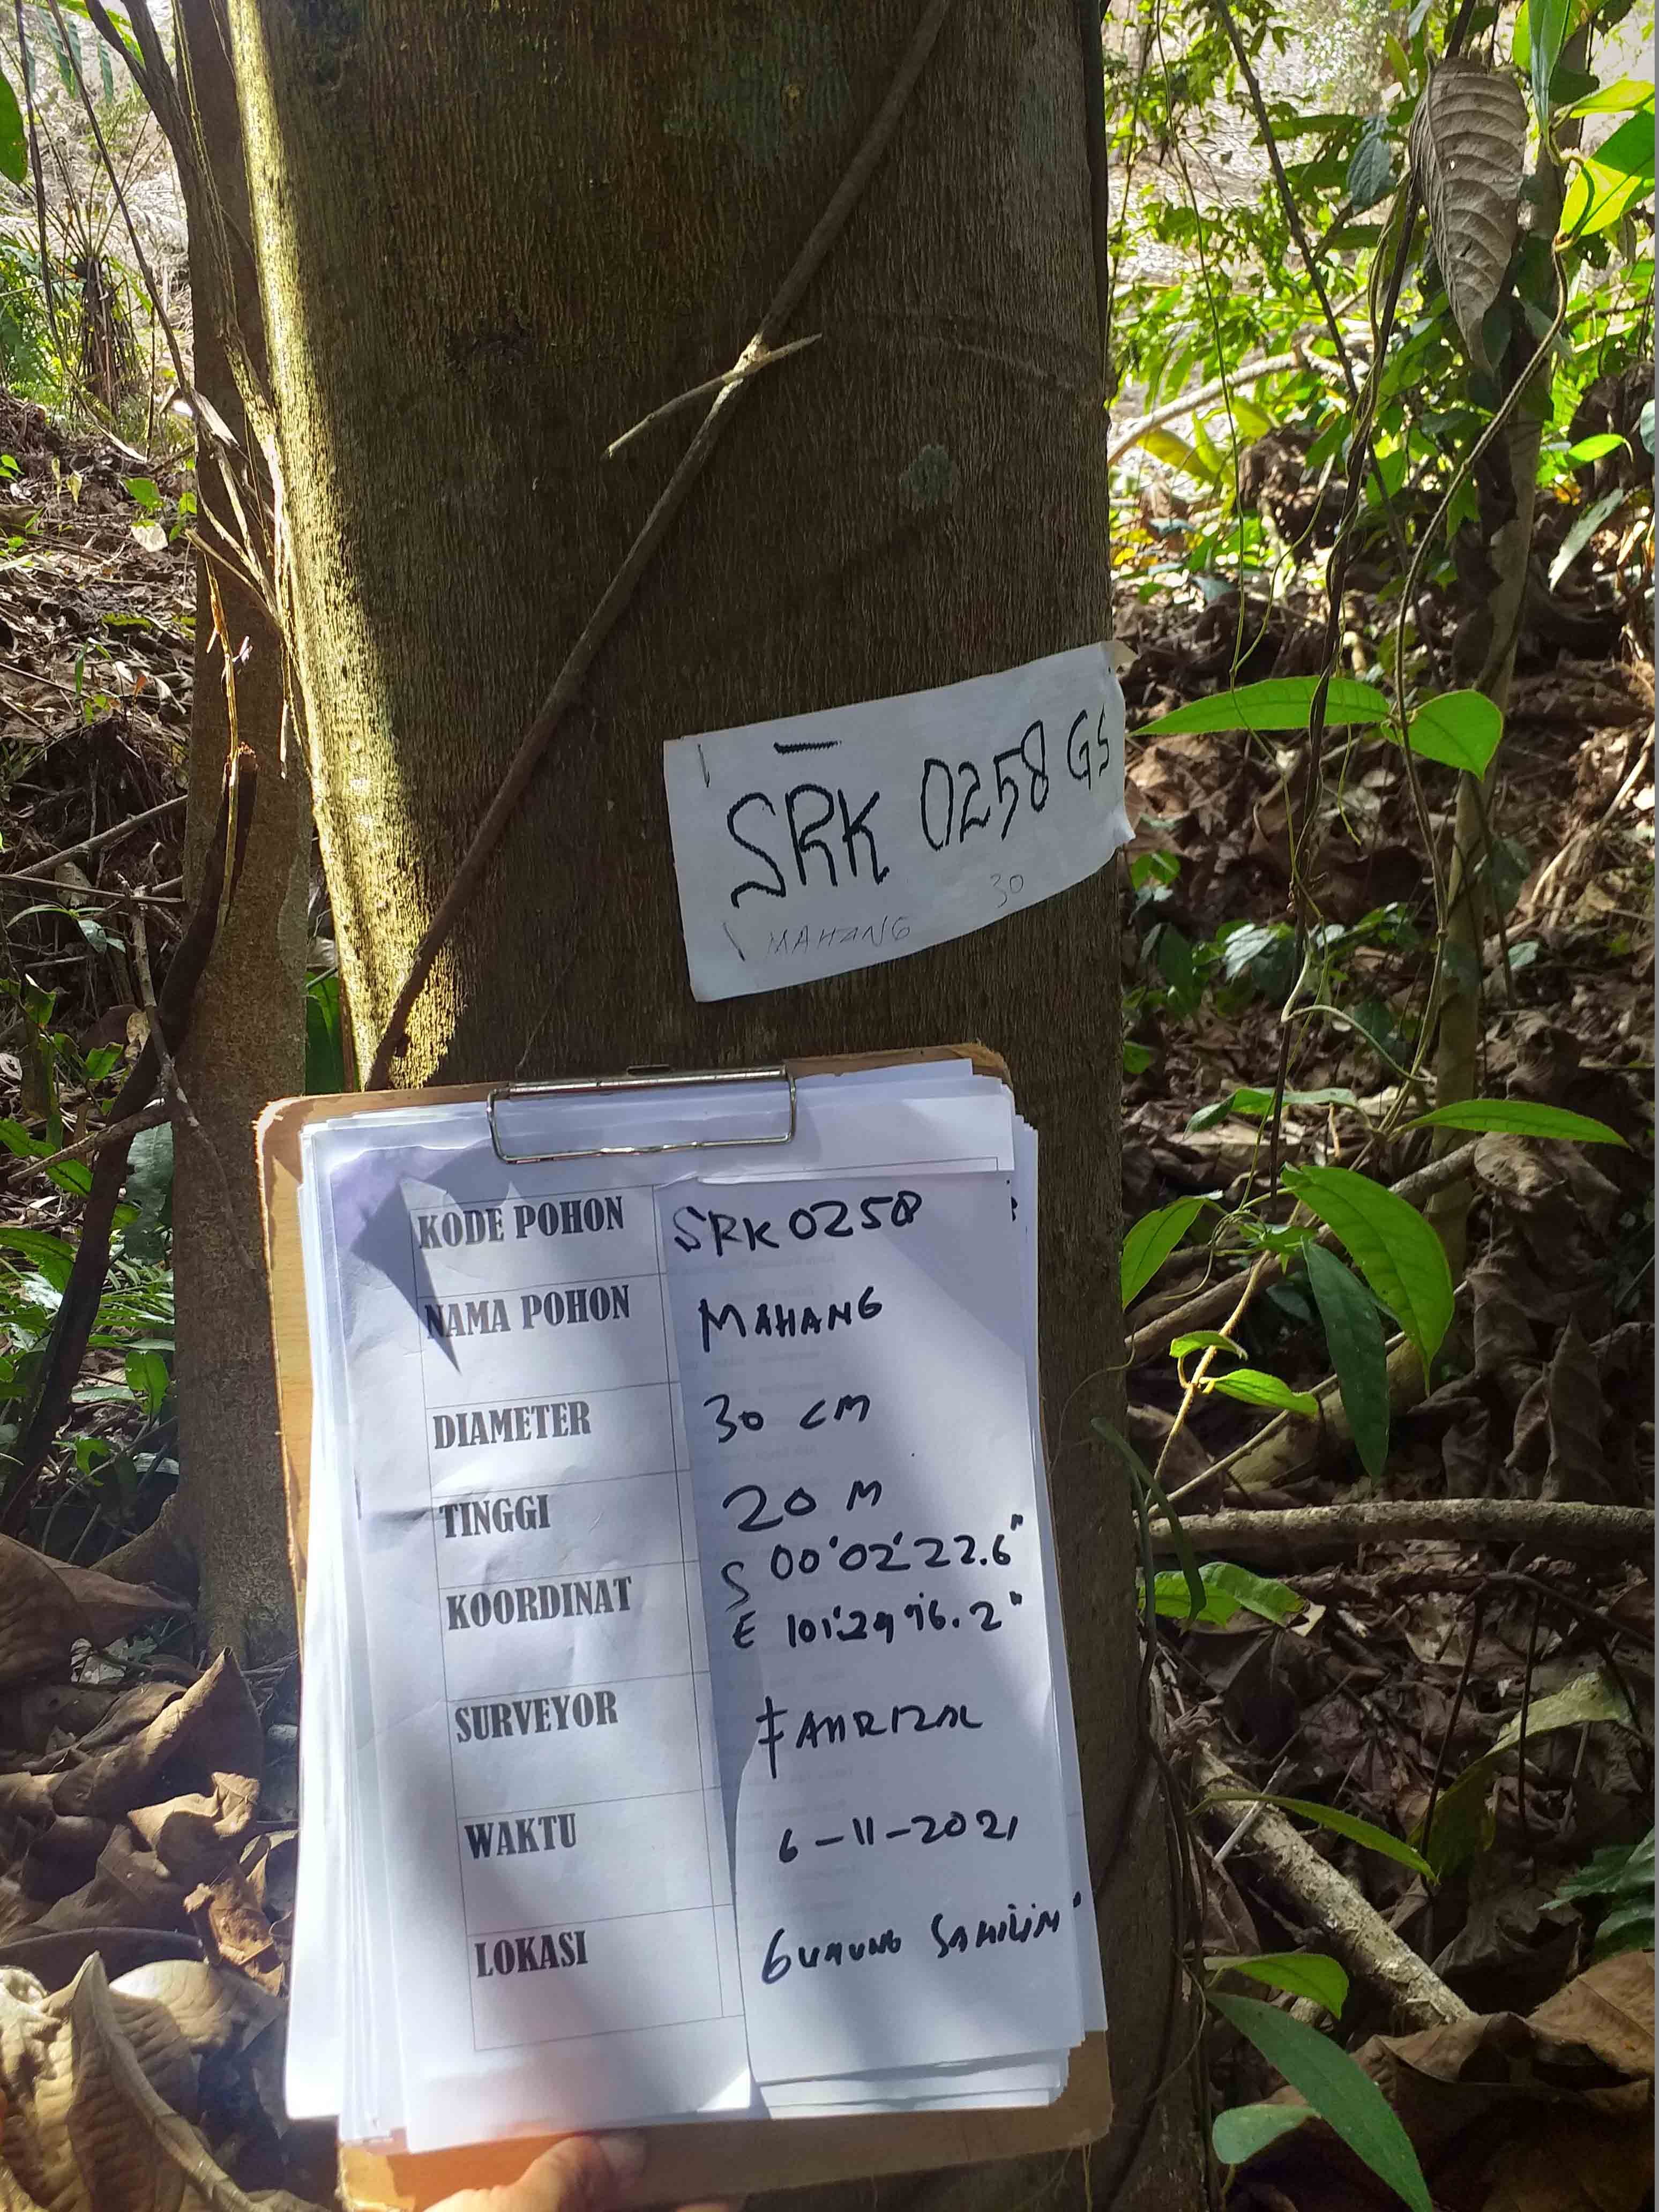 SRK 0258 GS
MAHANG 30
KODE POHON SRK 0258
NAMA POHON MAHANG
DIAMETER 30 CM
TINGGI 20 M
KOORDINAT S 00°02'22.6"
E 101°29'16.2"
SURVEYOR FAHRIZAL
WAKTU 6-11-2021
LOKASI GUNUNG SAHILIM